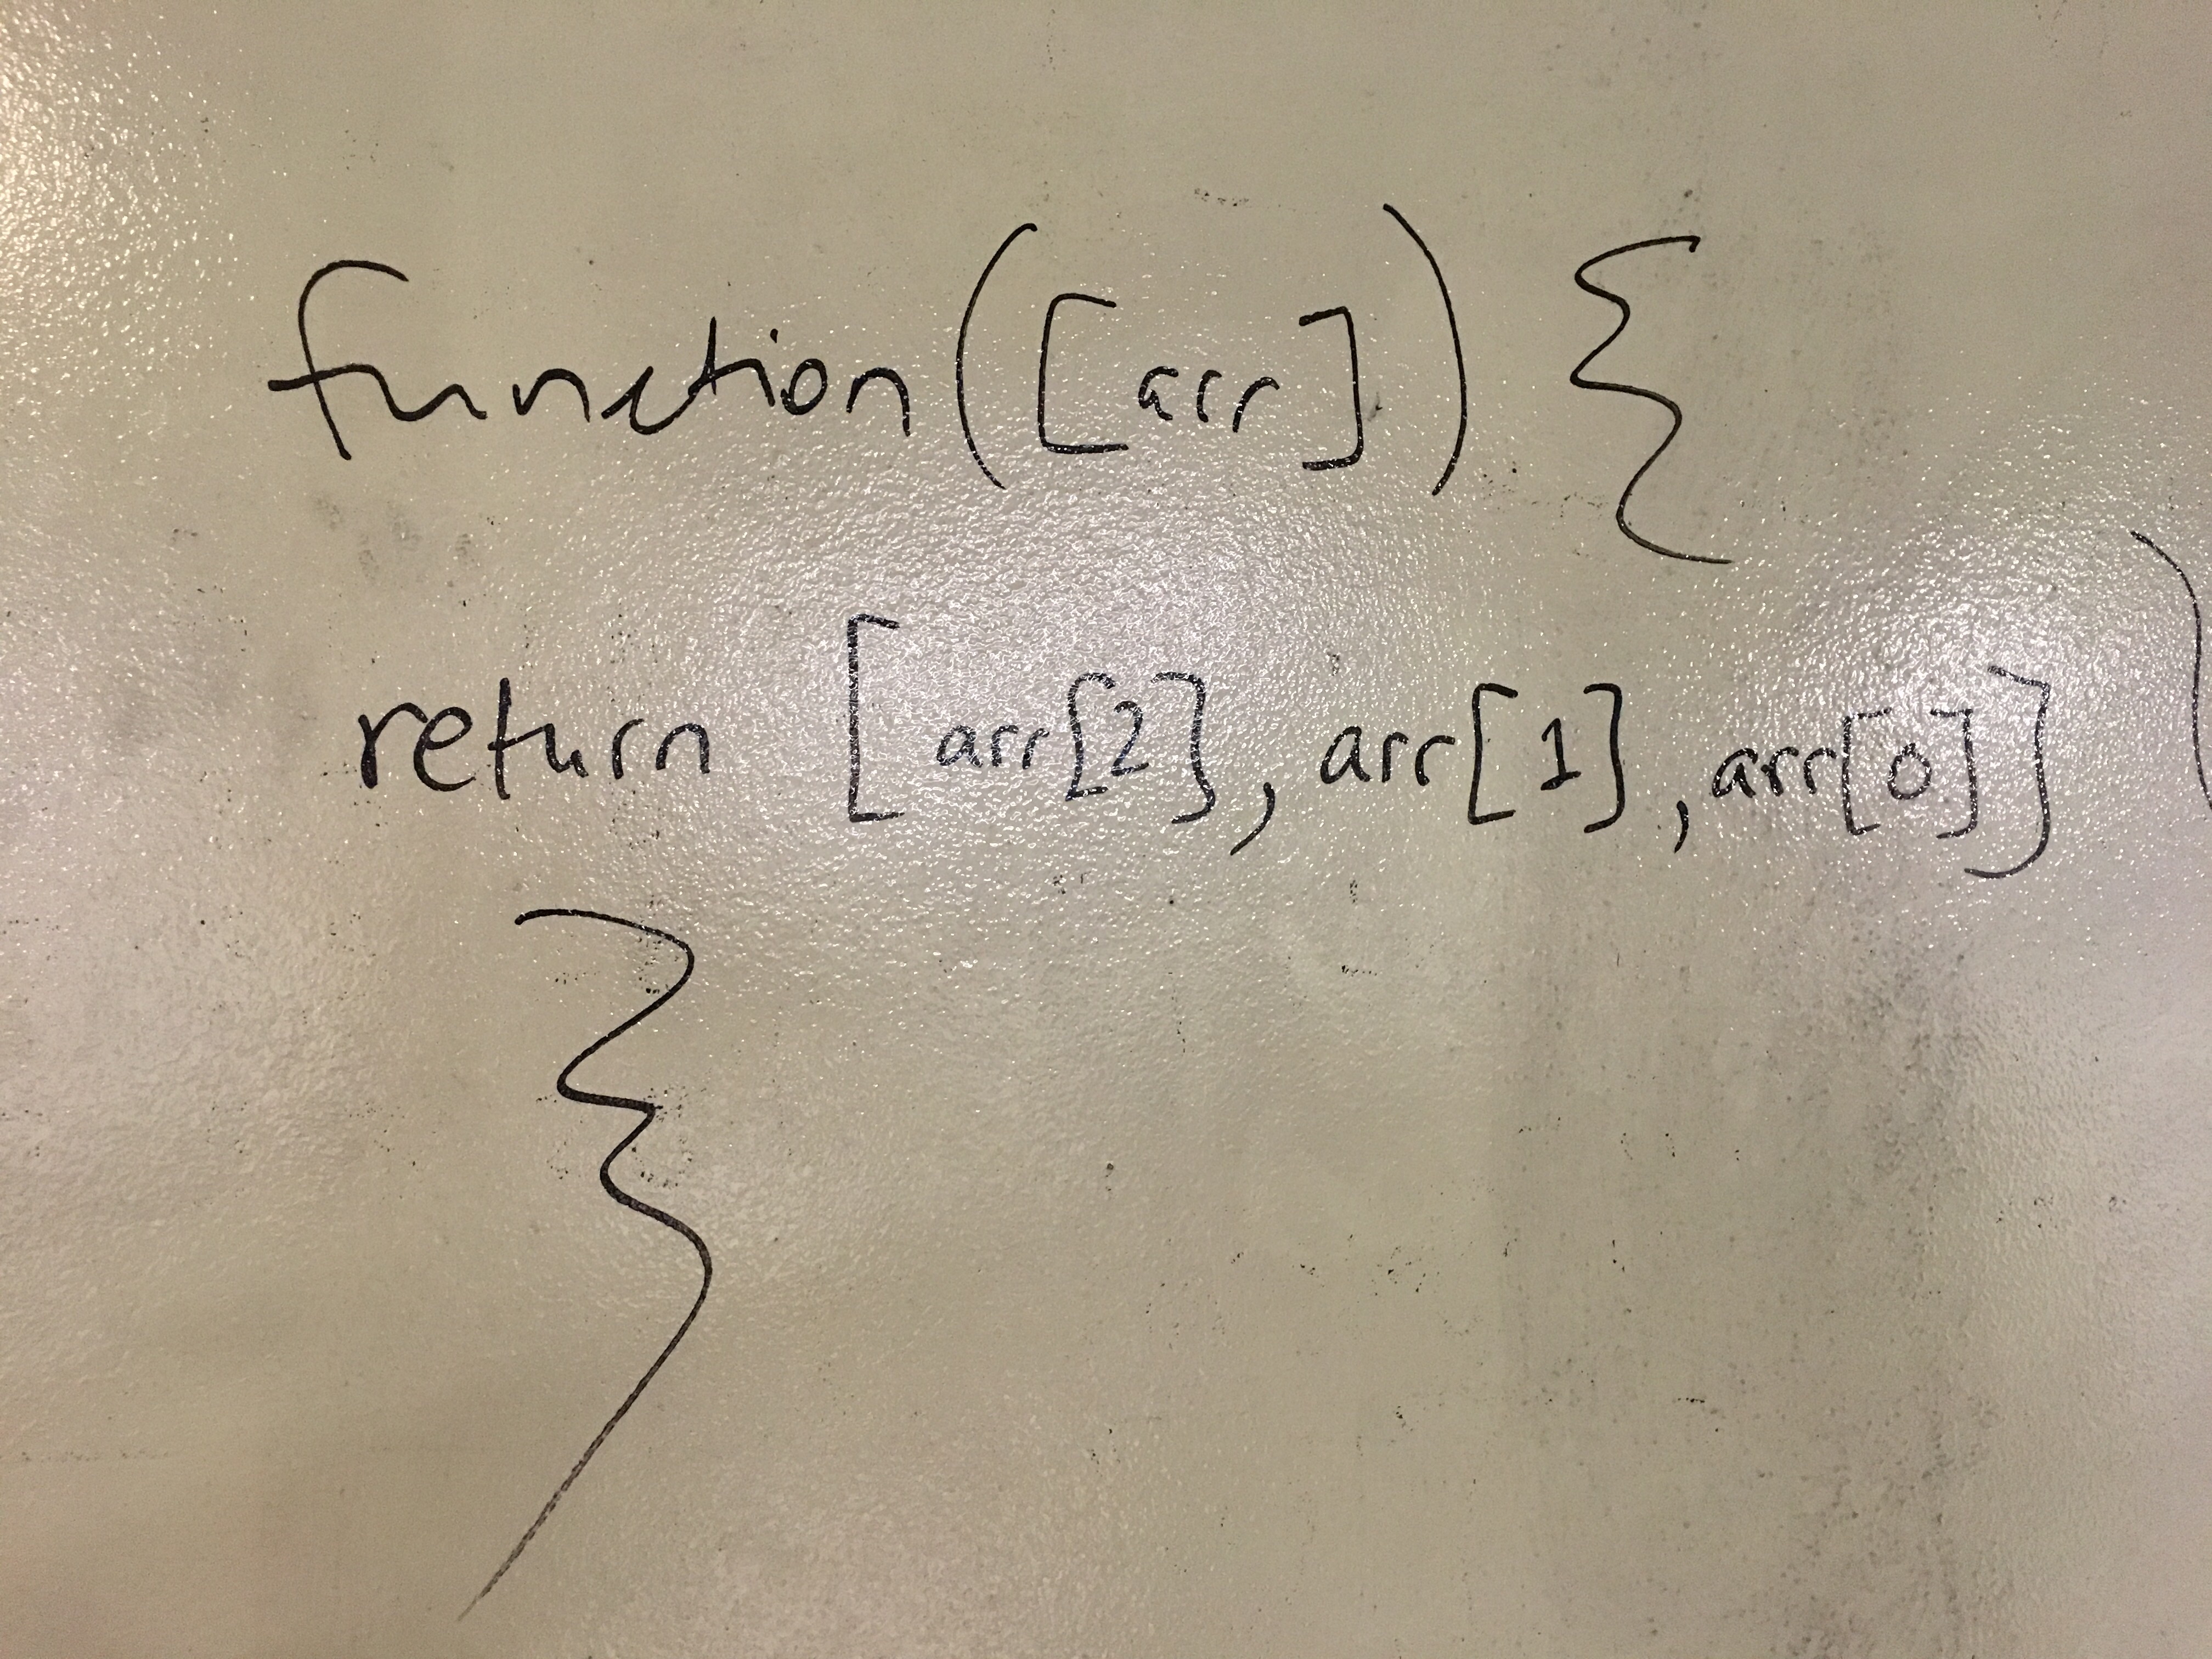 function([arr]) {
return [arr[2], arr[1], arr[0]] )
}